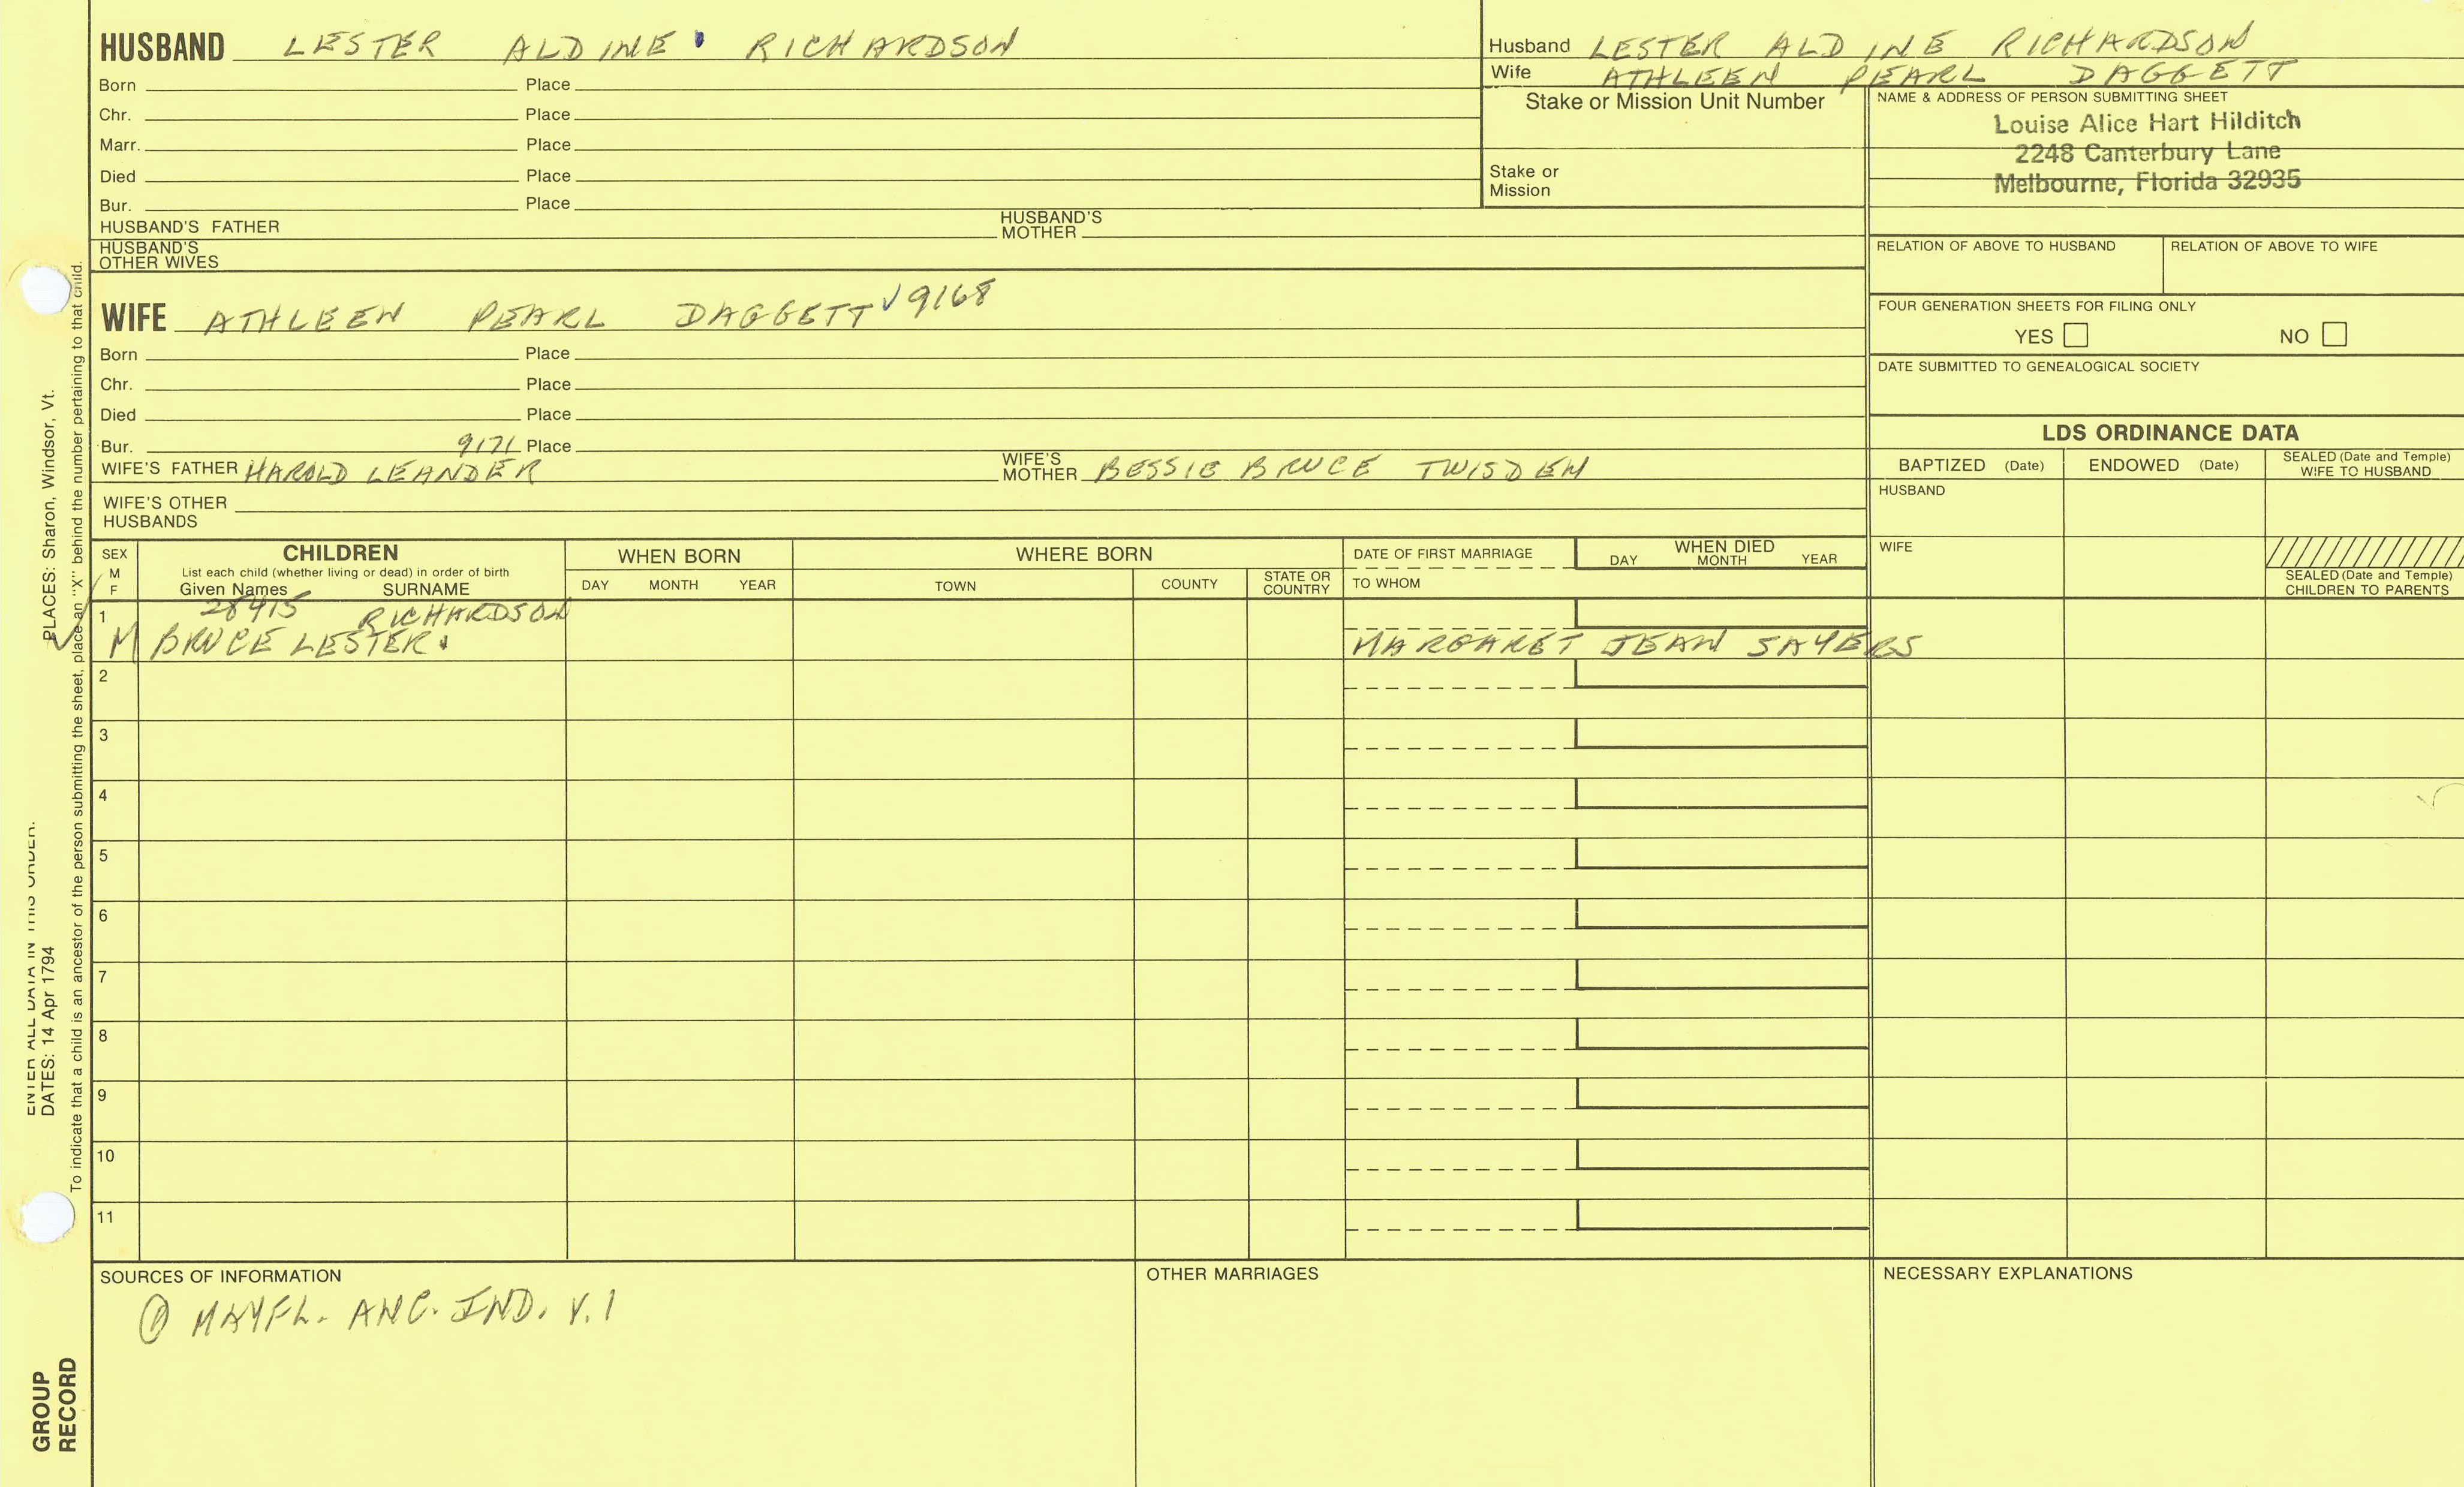 HUSBAND LESTER ALDINE RICHARDSON
Born Place
Chr. Place
Marr. Place
Died Place
Bur. Place
HUSBAND'S FATHER HUSBAND'S MOTHER
HUSBAND'S OTHER WIVES
Husband LESTER ALDINE RICHARDSON
Wife ATHLEEN PEARL DAGGETT
Stake or Mission Unit Number
Stake or Mission
NAME & ADDRESS OF PERSON SUBMITTING SHEET
Louise Alice Hart Hilditch
2248 Canterbury Lane
Melbourne, Florida 32935
RELATION OF ABOVE TO HUSBAND RELATION OF ABOVE TO WIFE
FOUR GENERATION SHEETS FOR FILING ONLY
YES NO
DATE SUBMITTED TO GENEALOGICAL SOCIETY
WIFE ATHLEEN PEARL DAGGETT √9168
Born Place
Chr. Place
Died Place
Bur. 9171 Place
WIFE'S FATHER HAROLD LEANDER WIFE'S MOTHER BESSIE BRUCE TWISDEM
WIFE'S OTHER HUSBANDS
LDS ORDINANCE DATA
BAPTIZED (Date) ENDOWED (Date) SEALED (Date and Temple) WIFE TO HUSBAND
HUSBAND
WIFE
SEALED (Date and Temple) CHILDREN TO PARENTS
SEX M F
CHILDREN
List each child (whether living or dead) in order of birth
Given Names SURNAME
WHEN BORN
DAY MONTH YEAR
WHERE BORN
TOWN COUNTY STATE OR COUNTRY
DATE OF FIRST MARRIAGE
TO WHOM
WHEN DIED
DAY MONTH YEAR
1 28415 RICHARDSON
√ M BRUCE LESTER MARGARET JEAN SAYERS
2
3
4
5
6
7
8
9
10
11
SOURCES OF INFORMATION
① MAYFL. ANC. IND. V. 1
OTHER MARRIAGES
NECESSARY EXPLANATIONS
ENTER ALL DATA IN THIS ORDER.
DATES: 14 Apr 1794 PLACES: Sharon, Windsor, Vt.
To indicate that a child is an ancestor of the person submitting the sheet, place an "X" behind the number pertaining to that child.
GROUP RECORD